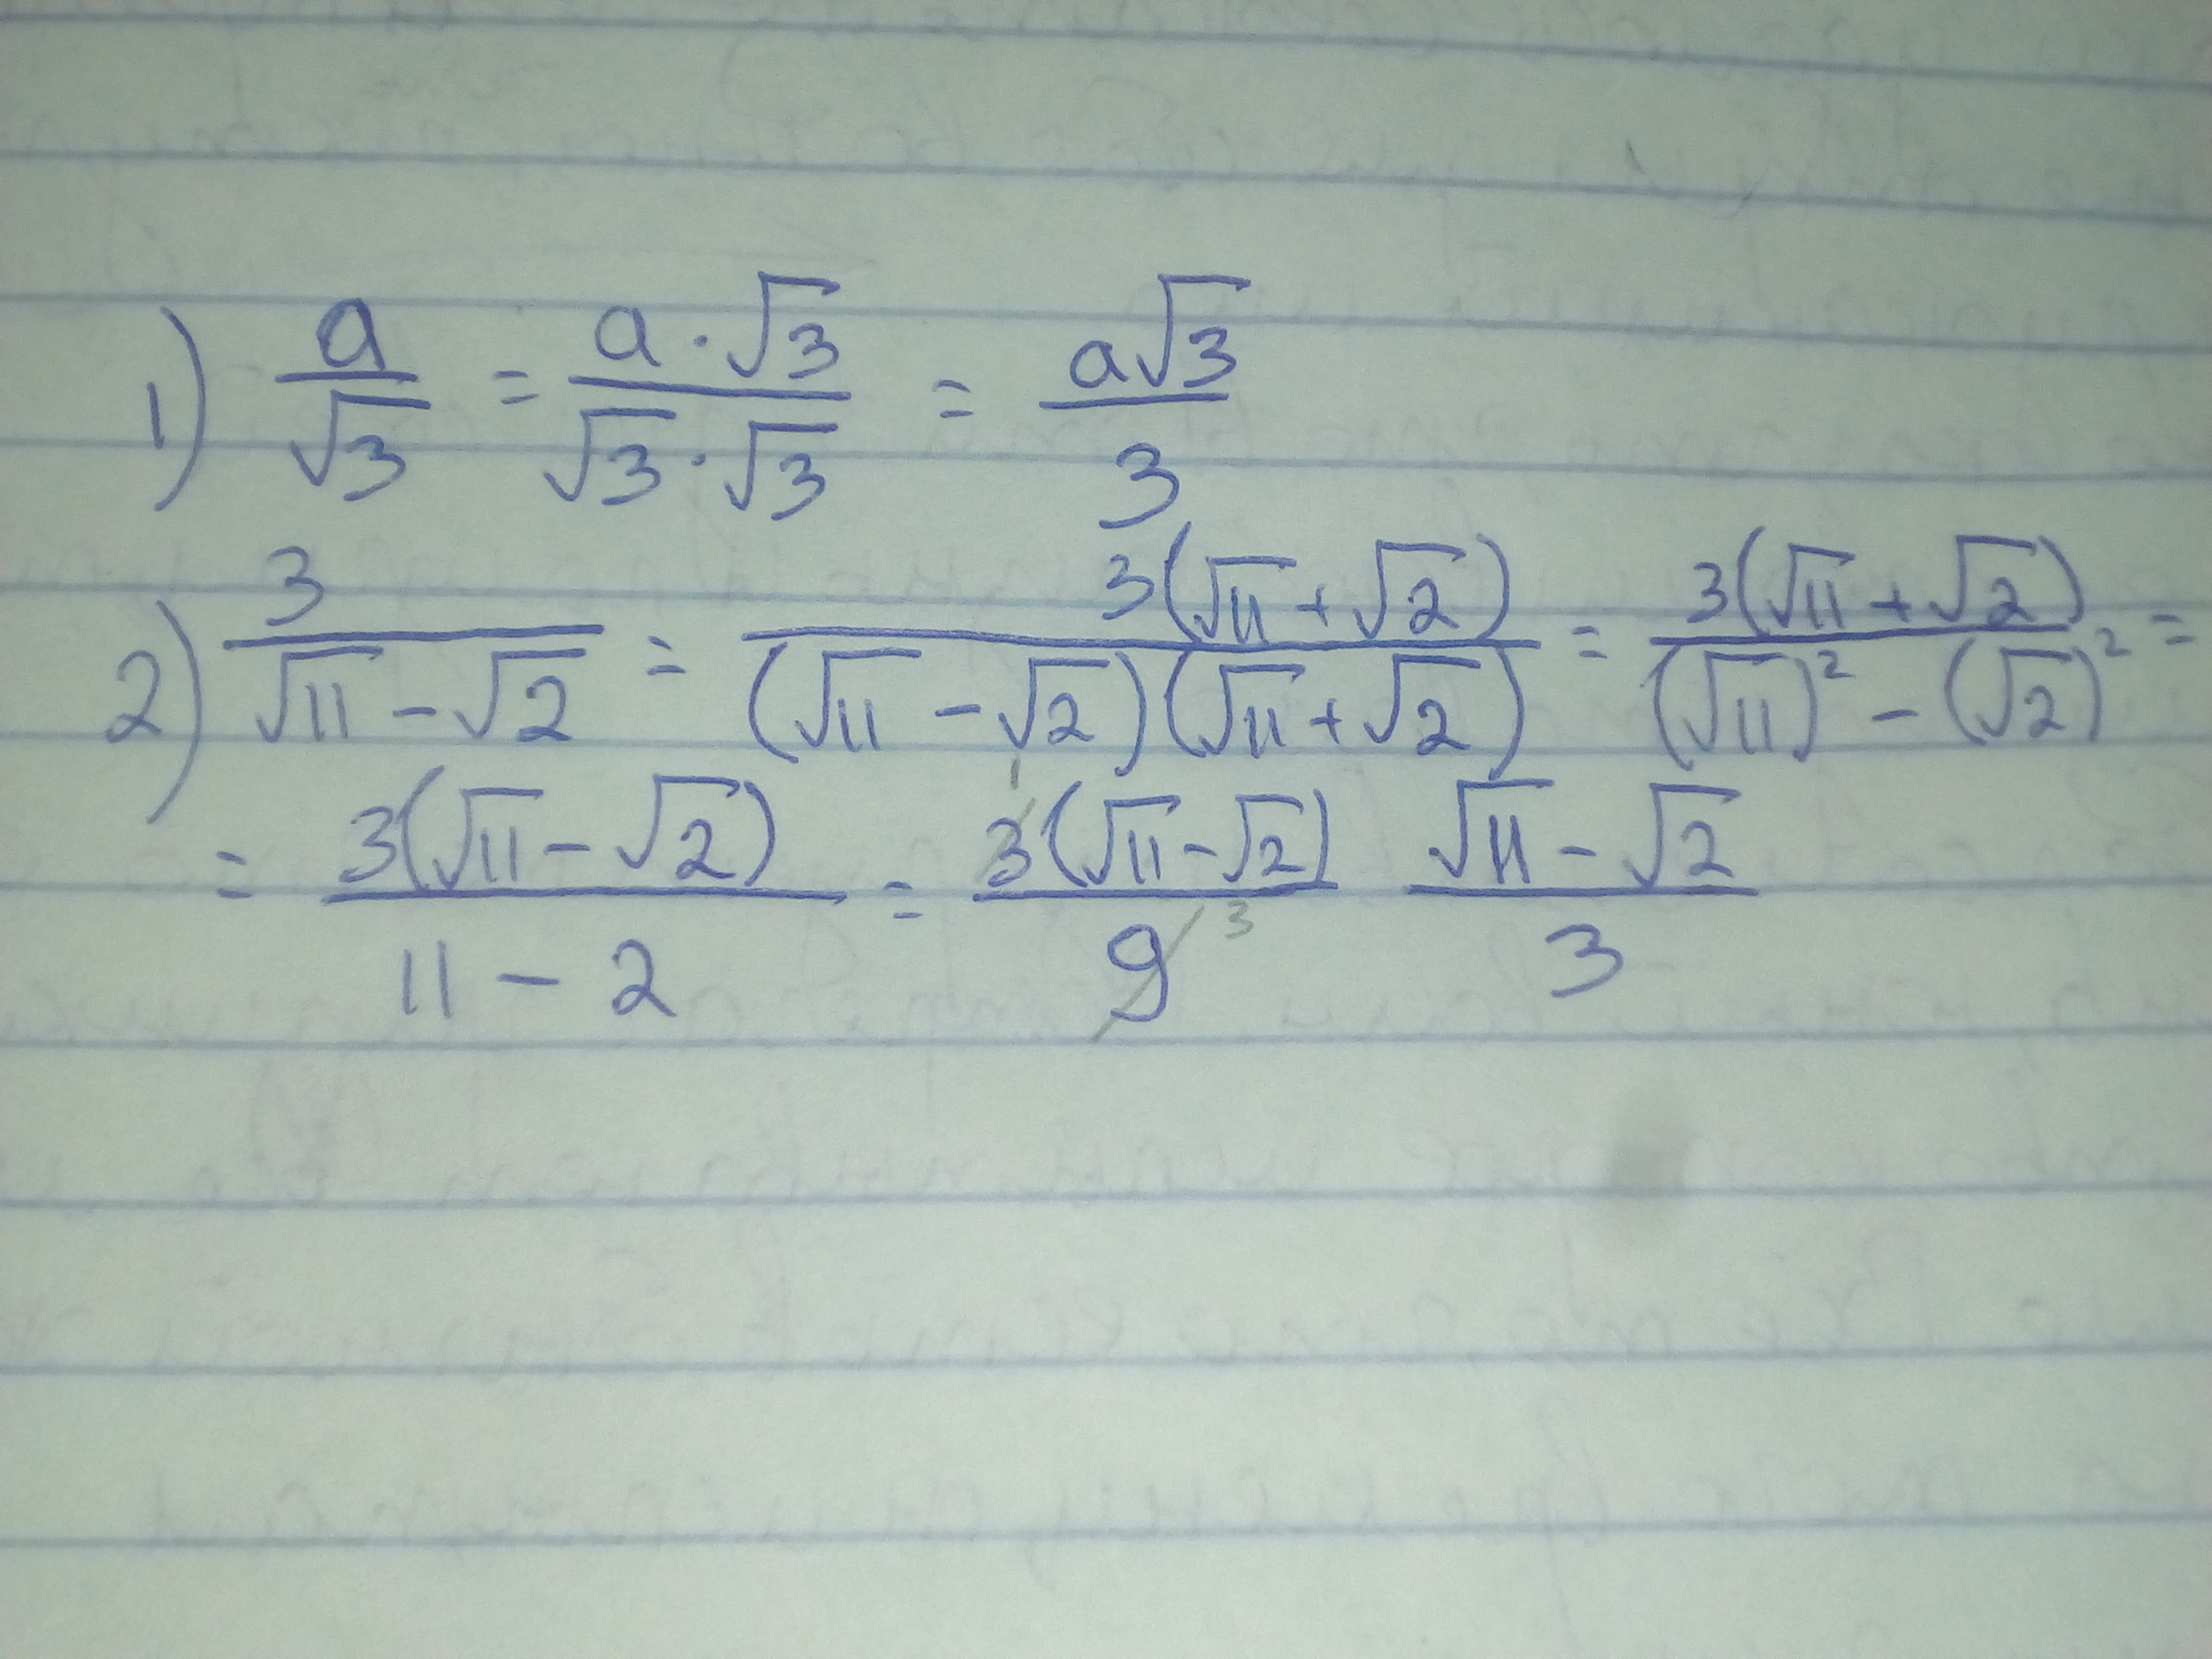 1) a/√3 = a·√3/√3·√3 = a√3/3
2) 3/√11-√2 = 3(√11+√2)/(√11-√2)(√11+√2) = 3(√11+√2)/(√11)²-(√2)² =
= 3(√11-√2)/11-2 = 3(√11-√2)/9 1 3 √11-√2/3